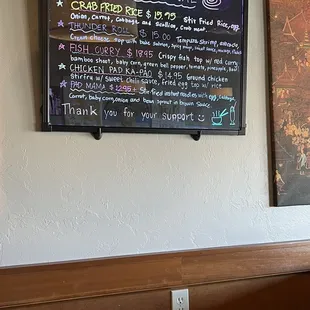 CRAB FRIED RICE $ 15.95 Stir Fried Rice, egg,
Onion, Carrot, Cabbage and Scallion, Crab meat.
THUNDER ROLL $ 15.00 Tempura shrimp, avocado
Cream cheese top with bake salmon, spicy mayo,
FISH CURRY $ 18.95 Crispy fish top w/ red curry
bamboo shoot, baby corn, green bell pepper, tomato, pineapple,
CHICKEN PAD KA-PAO $ 14.95 Ground chicken
stir fry w/ sweet chili sauce, fried egg top w/ rice
PAD MAMA $ 12.95+ Stir-fried instant noodles with egg, cabbage,
Carrot, baby corn, onion and bean sprout in brown sauce
Thank you for your support